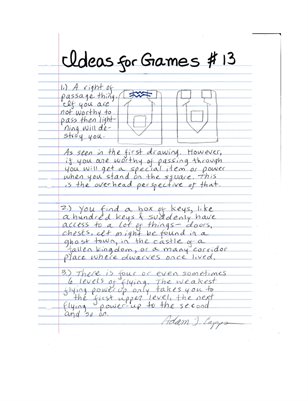 Ideas for Games #13
1.) A right of
passage thing.
If you are
not worthy to
pass then light-
ning will de-
stroy you.
As seen in the first drawing. However,
if you are worthy of passing through
you will get a special item or power
when you stand on the square. This
is the overhead perspective of that.
2.) You find a box of keys, like
a hundred keys & suddenly have
access to a lot of things - doors,
chests. It might be found in a
ghost town, in the castle of a
fallen kingdom, or a many corridor
place where dwarves once lived.
3.) There is four or even sometimes
6 levels of flying. The weakest
flying power-up only takes you to
the first upper level, the next
flying power-up to the second
and so on.
Adam J. Capps